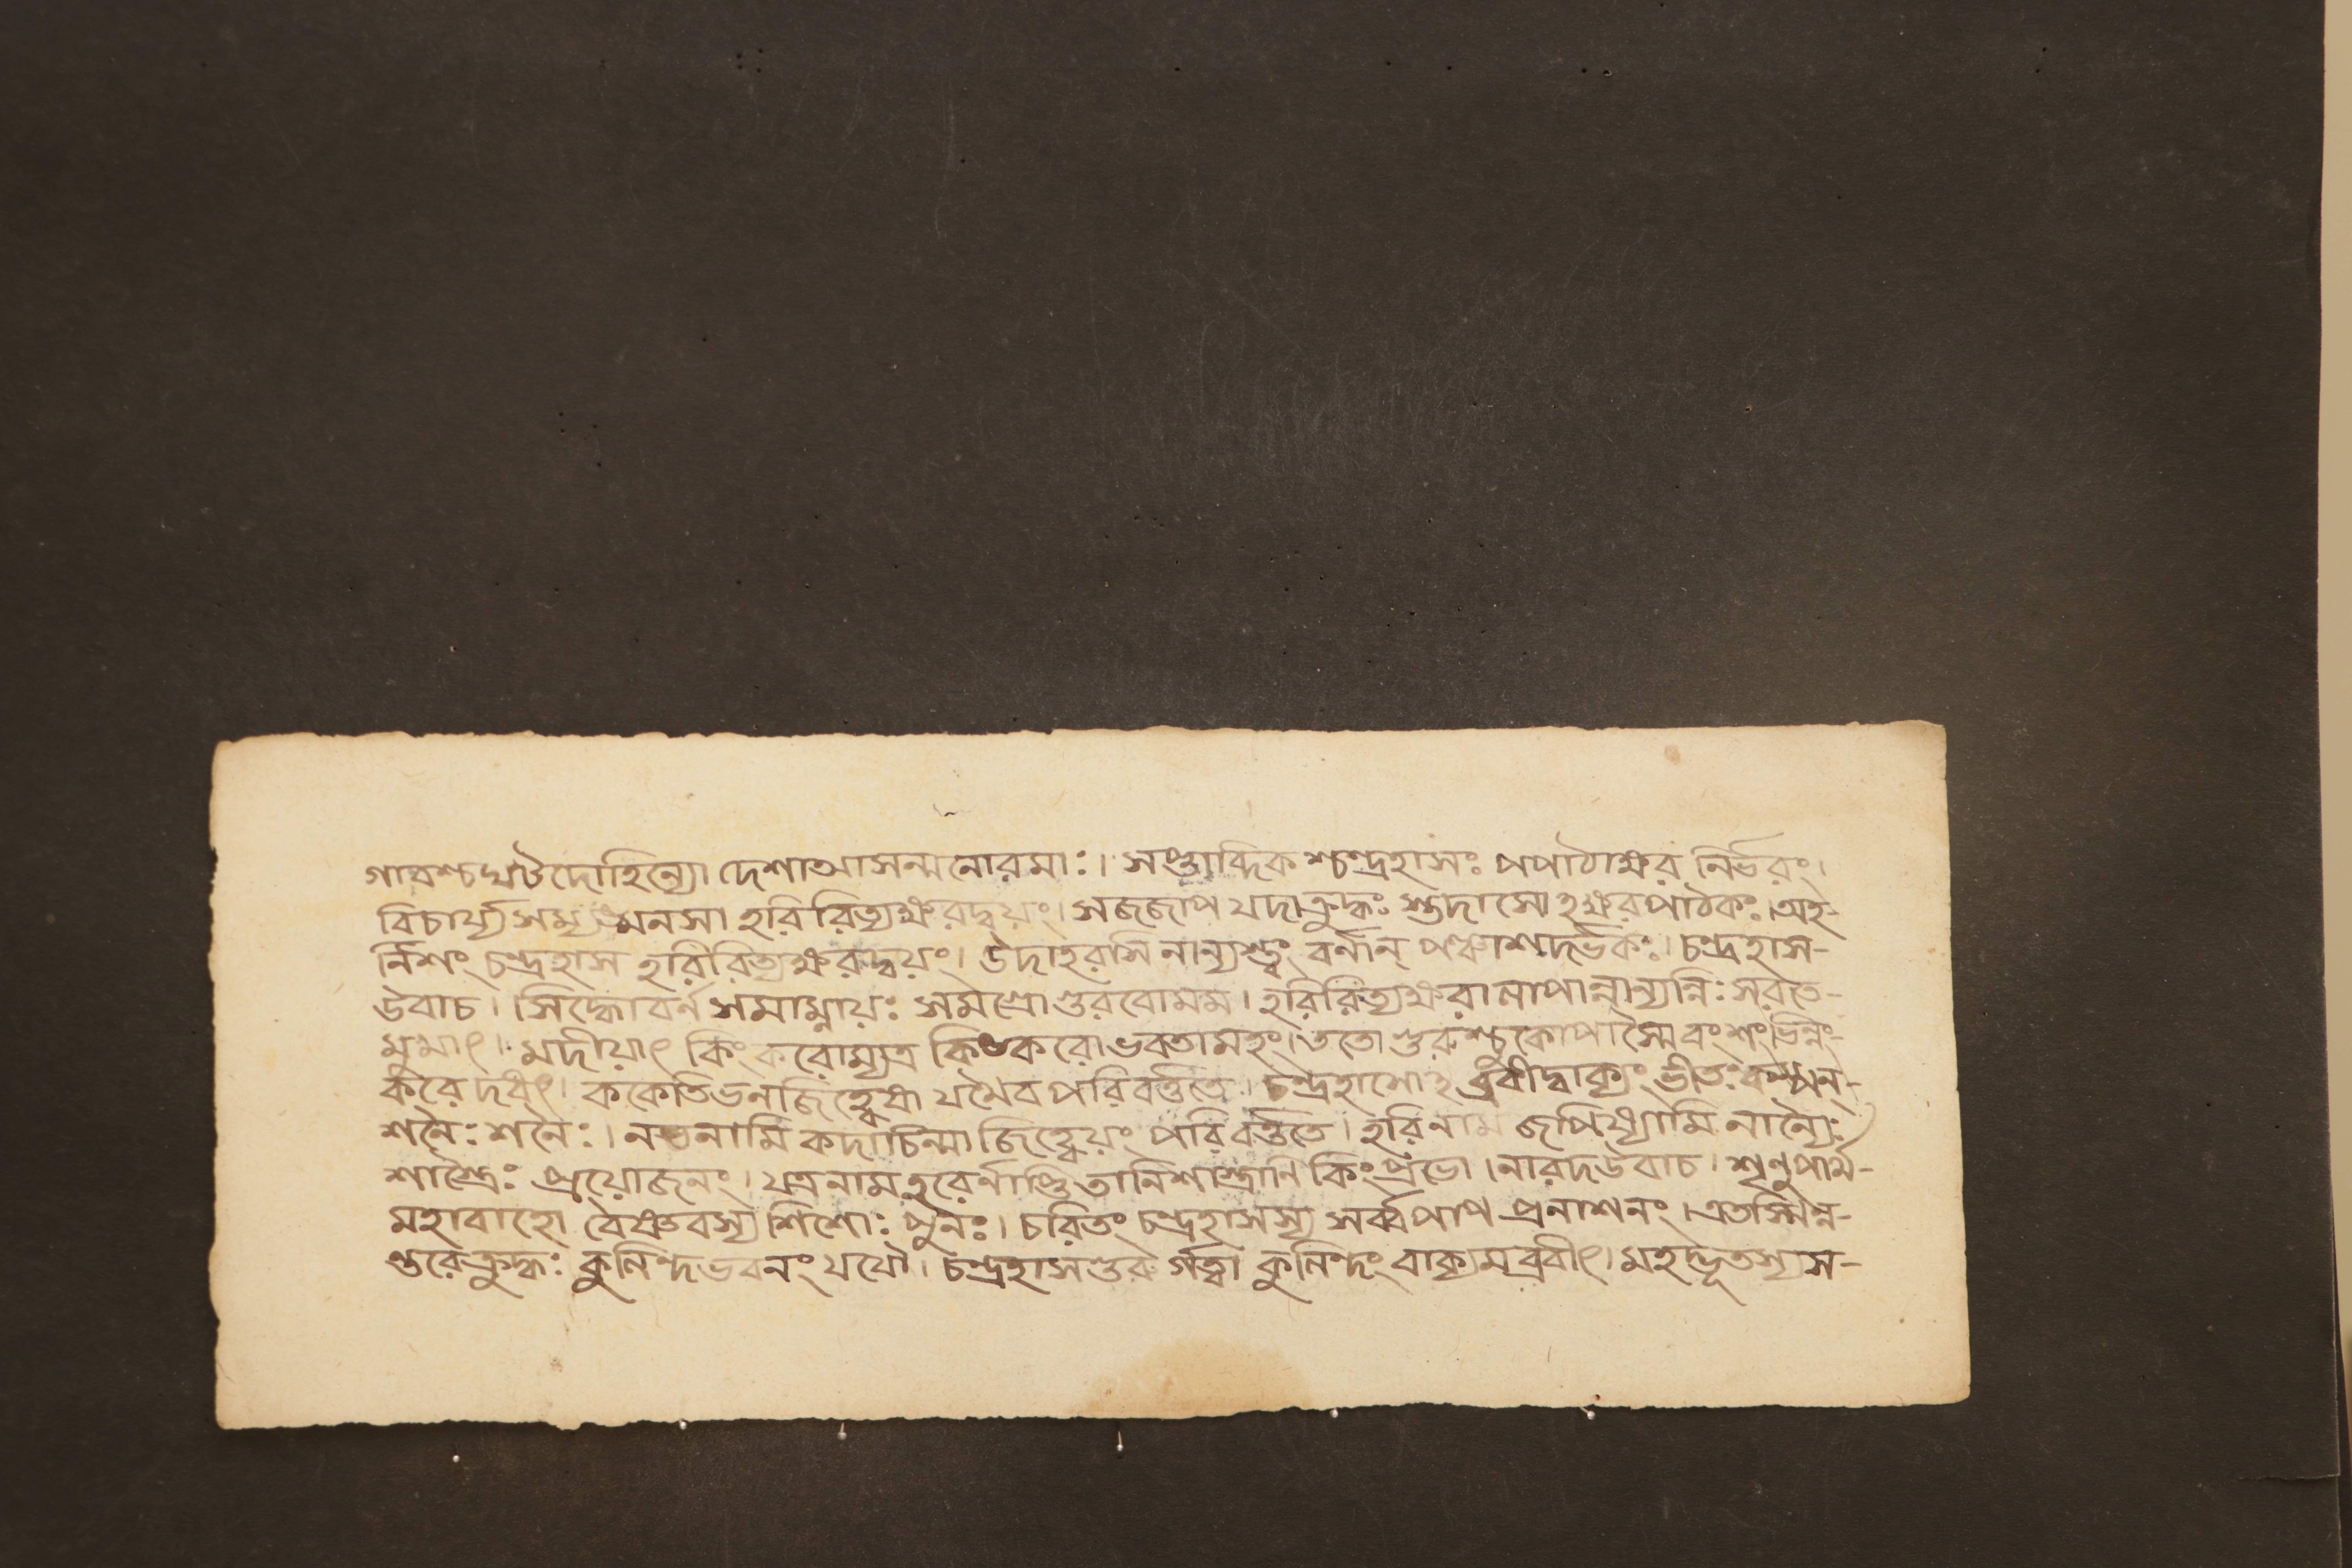 গাবশ্চঘটদোহিন্যো দেশাআসন্মনোরমাঃ। সপ্তাব্দিকশ্চন্দ্রহাসঃ পপাঠাক্ষর নির্ভরং।
বিচার্য্য মনসা হরিরিত্যক্ষরদ্বয়ং। সজজাপ যদাক্রুদ্ধঃ স্তদাসোহক্ষরপাঠকঃ। অহ-
র্নিশং চন্দ্রহাস হরিরিত্যক্ষরদ্বয়ং। উদাহরসি নান্যস্ত্বং বর্নান্ পঞ্চাশদর্ভকঃ। চন্দ্রহাস-
উবাচ। সিদ্ধোবর্ন সমাম্নায়ঃ সমগ্রো গুরবোমম। হরিরিত্যক্ষরা
মুমাৎ। মদীয়াৎ কিং করোম্যত্র করোভবতামহং। ততো গুরুশ্চুকোপাস্মৈ বংশং ভিন্নং-
করে দধৎ। ককেতিভনজিহ্বেষা যথৈবপরিবর্ত্ততে। চন্দ্রহাসোহব্রবীদ্বাক্যং ভীতঃ কম্পন্-
শনৈঃ শনৈঃ। নভনামি কদাচিন্মা জিহ্বেয়ং পরিবর্ত্ততে। হরিনাম জপিষ্যামি নান্যৈঃ
শাস্ত্রৈঃ প্রয়োজনং। যত্রনাম হরের্নাস্তি তানিশাস্ত্রানি কিং প্রভো। নারদউবাচ। শৃনুপার্থ-
মহাবাহো বৈষ্ণবস্য শিশোঃ পুনঃ। চরিতং চন্দ্রহাসস্য সর্ব্বপাপ প্রনাশনং। এতস্মিন্ন-
ন্তরেক্রুদ্ধঃ কুনিন্দভবনং যযৌ। চন্দ্রহাসগুরু র্গত্বা কুনিন্দং বাক্যমব্রবীৎ। মহদ্ভূতস্যস-